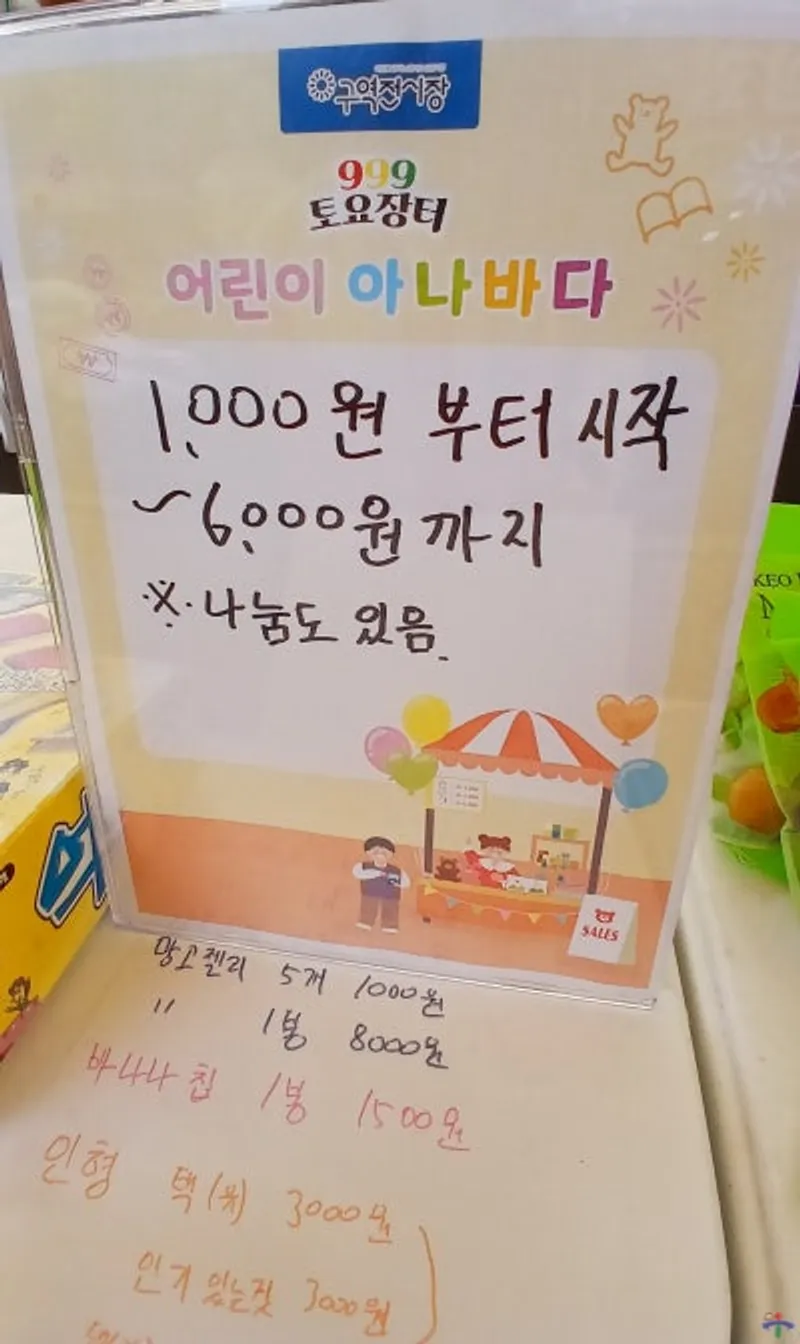 구역전시장
999
토요장터
어린이 아나바다
1,000원 부터 시작
~6,000원 까지
※ 나눔도 있음.
SALES
망고젤리 5개 1000원
" 1봉 8000원
바나나칩 1봉 1500원
인형 택(유) 3000원
인기 있는것 3000원